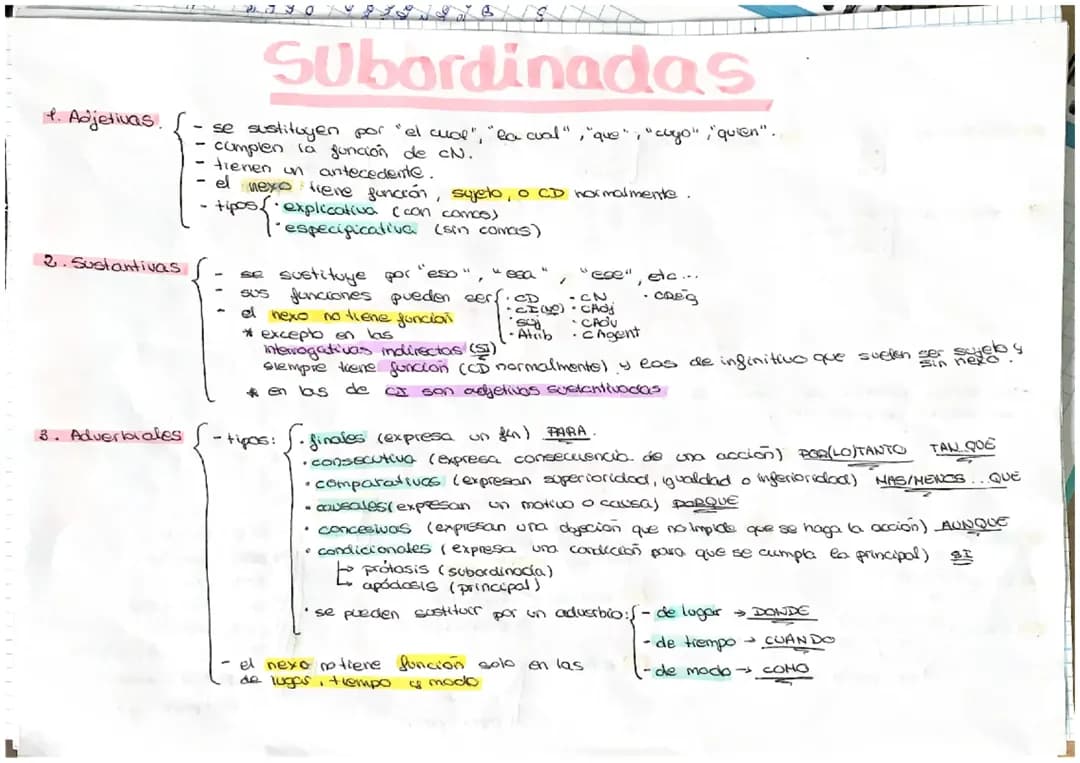 Subordinadas
1. Adjetivas.
- se sustituyen por "el cual", "la cual", "que", "cuyo", "quien".
- cumplen la función de CN.
- tienen un antecedente.
- el nexo tiene función, sujeto, o CD normalmente.
- tipos · explicativa (con comas)
· especificativa (sin comas)
2. Sustantivas
- se sustituye por "eso", "esa", "ese", etc...
- sus funciones pueden ser · CD · CN · CREG
- el nexo no tiene función · CI · CAdj
* excepto en las · suj · CAdv
interrogativas indirectas (SI) · Atrib · CAgent
siempre tiene función (CD normalmente) y las de infinitivo que suelen ser sujeto y sin nexo.
* en las de CI son adjetivas sustantivadas
3. Adverbiales
- tipos: · finales (expresa un fin) PARA.
· consecutiva (expresa consecuencia de una acción) POR(LO)TANTO TAN..QUE
· comparativas (expresan superioridad, igualdad o inferioridad) MAS/MENOS...QUE
· causales (expresan un motivo o causa) PORQUE
· concesivas (expresan una objeción que no impide que se haga la acción) AUNQUE
· condicionales (expresa una condición para que se cumpla la principal) SI
↳ prótasis (subordinada)
↳ apódosis (principal)
· se pueden sustituir por un adverbio: - de lugar → DONDE
- de tiempo → CUANDO
- de modo → COMO
- el nexo tiene función solo en las
de lugar, tiempo y modo